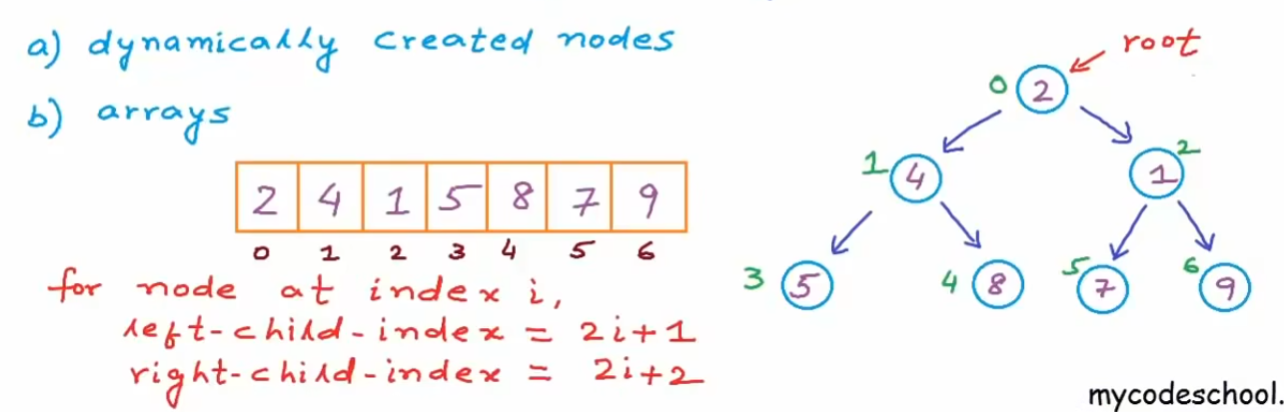 a) dynamically created nodes
b) arrays
2 4 1 5 8 7 9
0 1 2 3 4 5 6
for node at index i,
left-child-index = 2i+1
right-child-index = 2i+2
root
0 2
1 4
1 2
3 5
4 8
5 7
6 9
mycodeschool.